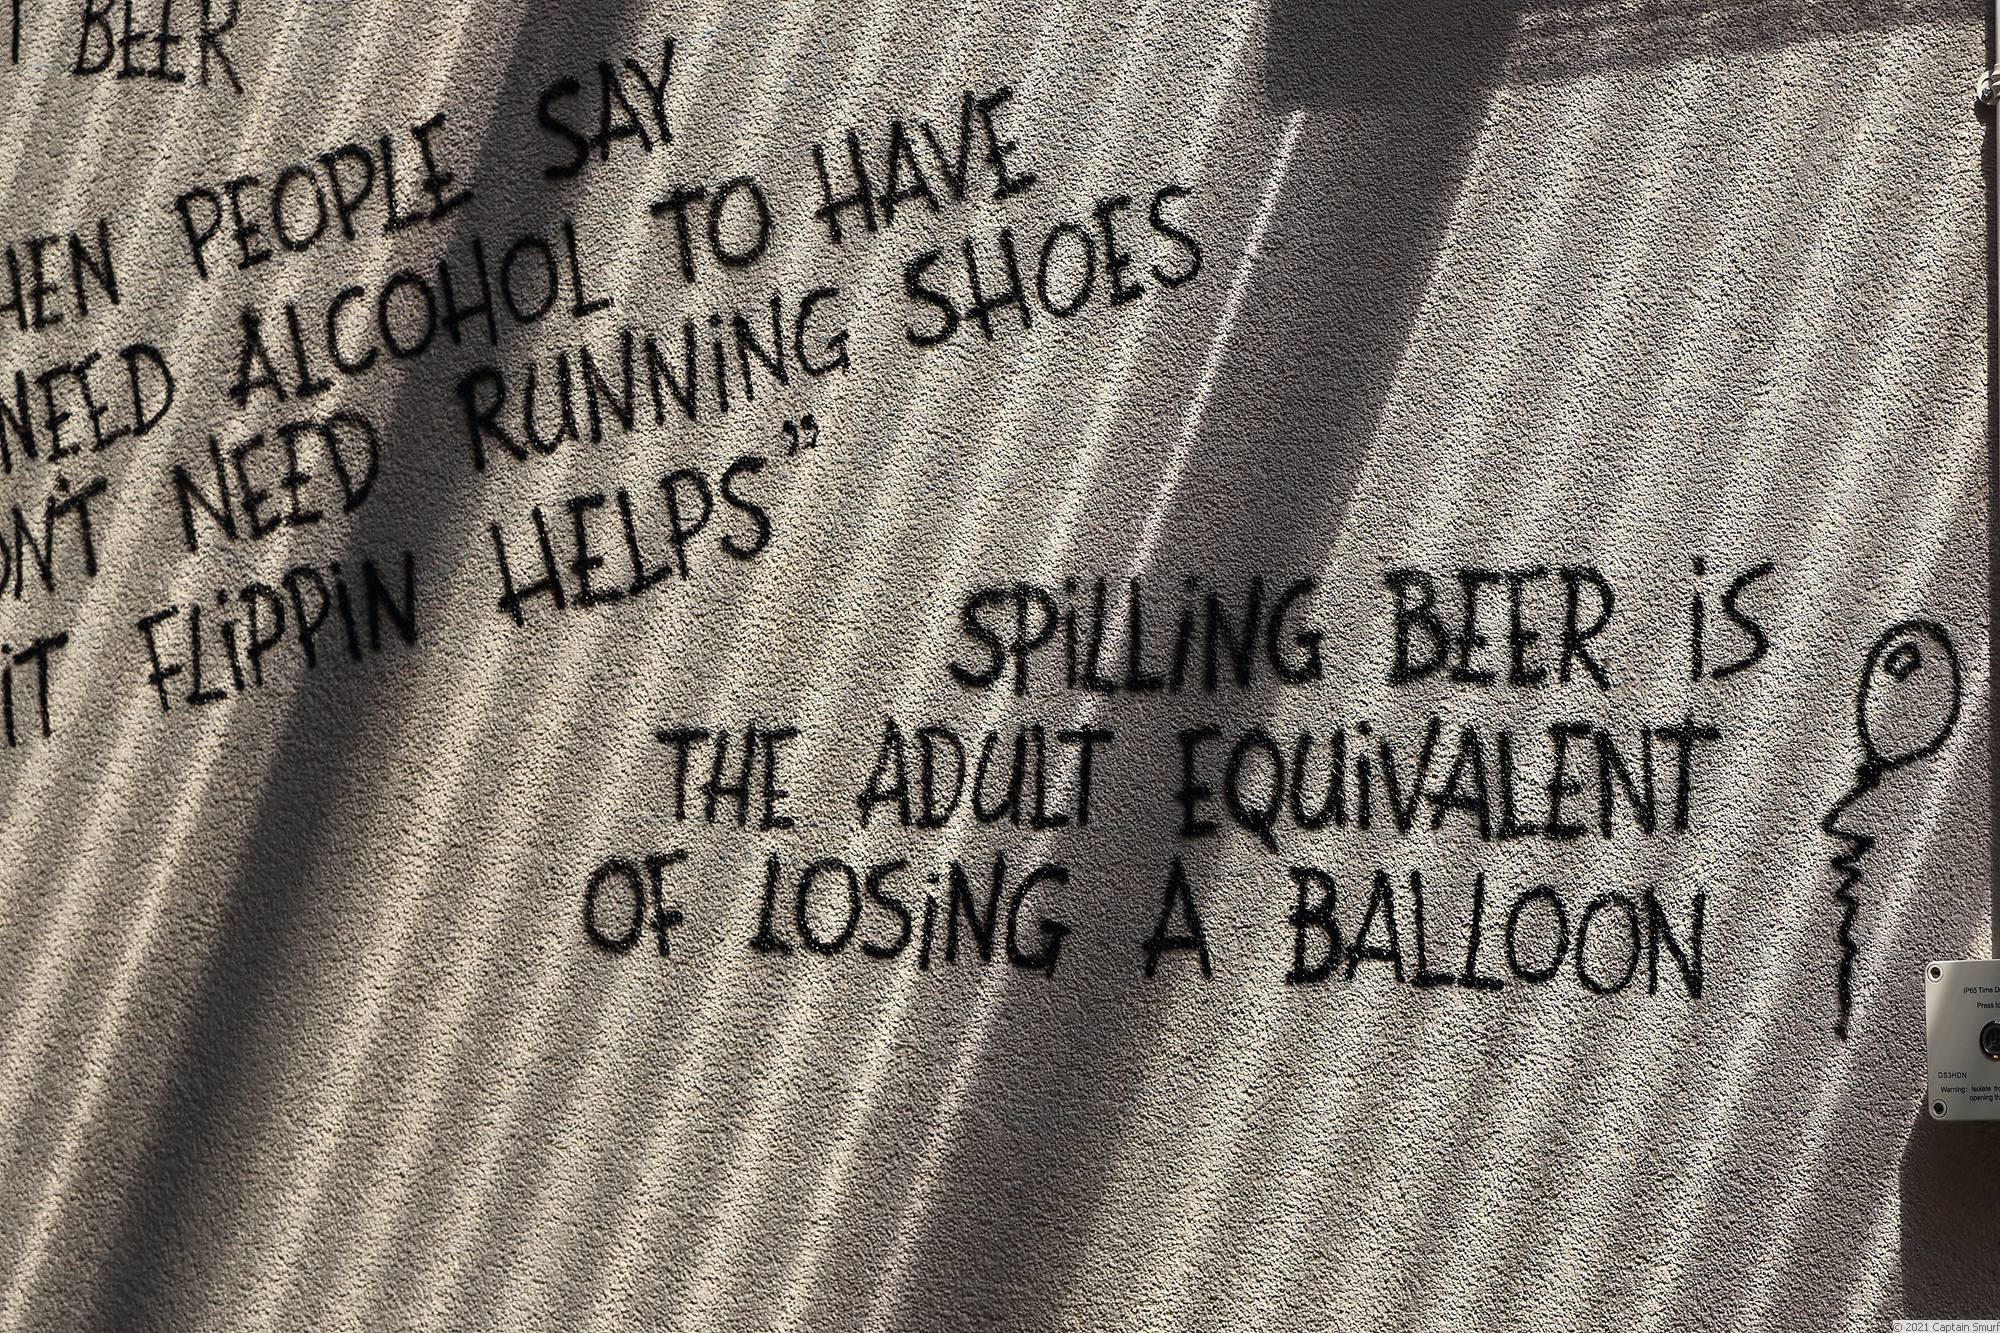 BEER
PEOPLE SAY
NEED ALCOHOL TO HAVE
NEED RUNNiNG SHOES
iT FLiPPiN HELPS”
SPiLLiNG BEER iS
THE ADULT EQUiVALENT
OF LOSiNG A BALLOON
IP65 Time
Press
DS3HDN
Warning: Isolate
opening
© 2021 Captain Smurf